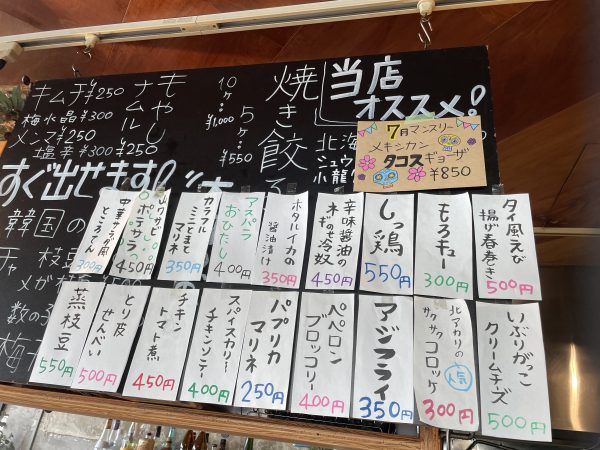 当店
オススメ!
7月マンスリー
メキシカン
タコスギョーザ
¥850
焼き餃
10ヶ…
¥1,000
5ヶ…
¥550
もやし
ナムル
¥250
キムチ¥250
梅水晶¥300
メンマ¥250
塩辛¥300
すぐ出せます!
韓国の
枝豆
メガ枝
数の
梅
北海
シュウ
小籠
タイ風えび
揚げ春巻き
500円
もろキュー
300円
しっ鶏
550円
辛味醤油の
ネギのせ冷奴
450円
ホタルイカの
醤油漬け
350円
アスパラ
おひたし
400円
カラフル
ミニとまと
マリネ
350円
山ワサビ
ポテサラ
450円
中華サラダ風
ところてん
300円
いぶりがっこ
クリームチーズ
500円
北アカリの
サクサク
コロッケ
人気
300円
アジフライ
350円
ペペロン
ブロッコリー
400円
パプリカ
マリネ
250円
スパイスカリー
チキンソテー
400円
チキン
トマト煮
450円
とり皮
せんべい
500円
蒸枝豆
550円